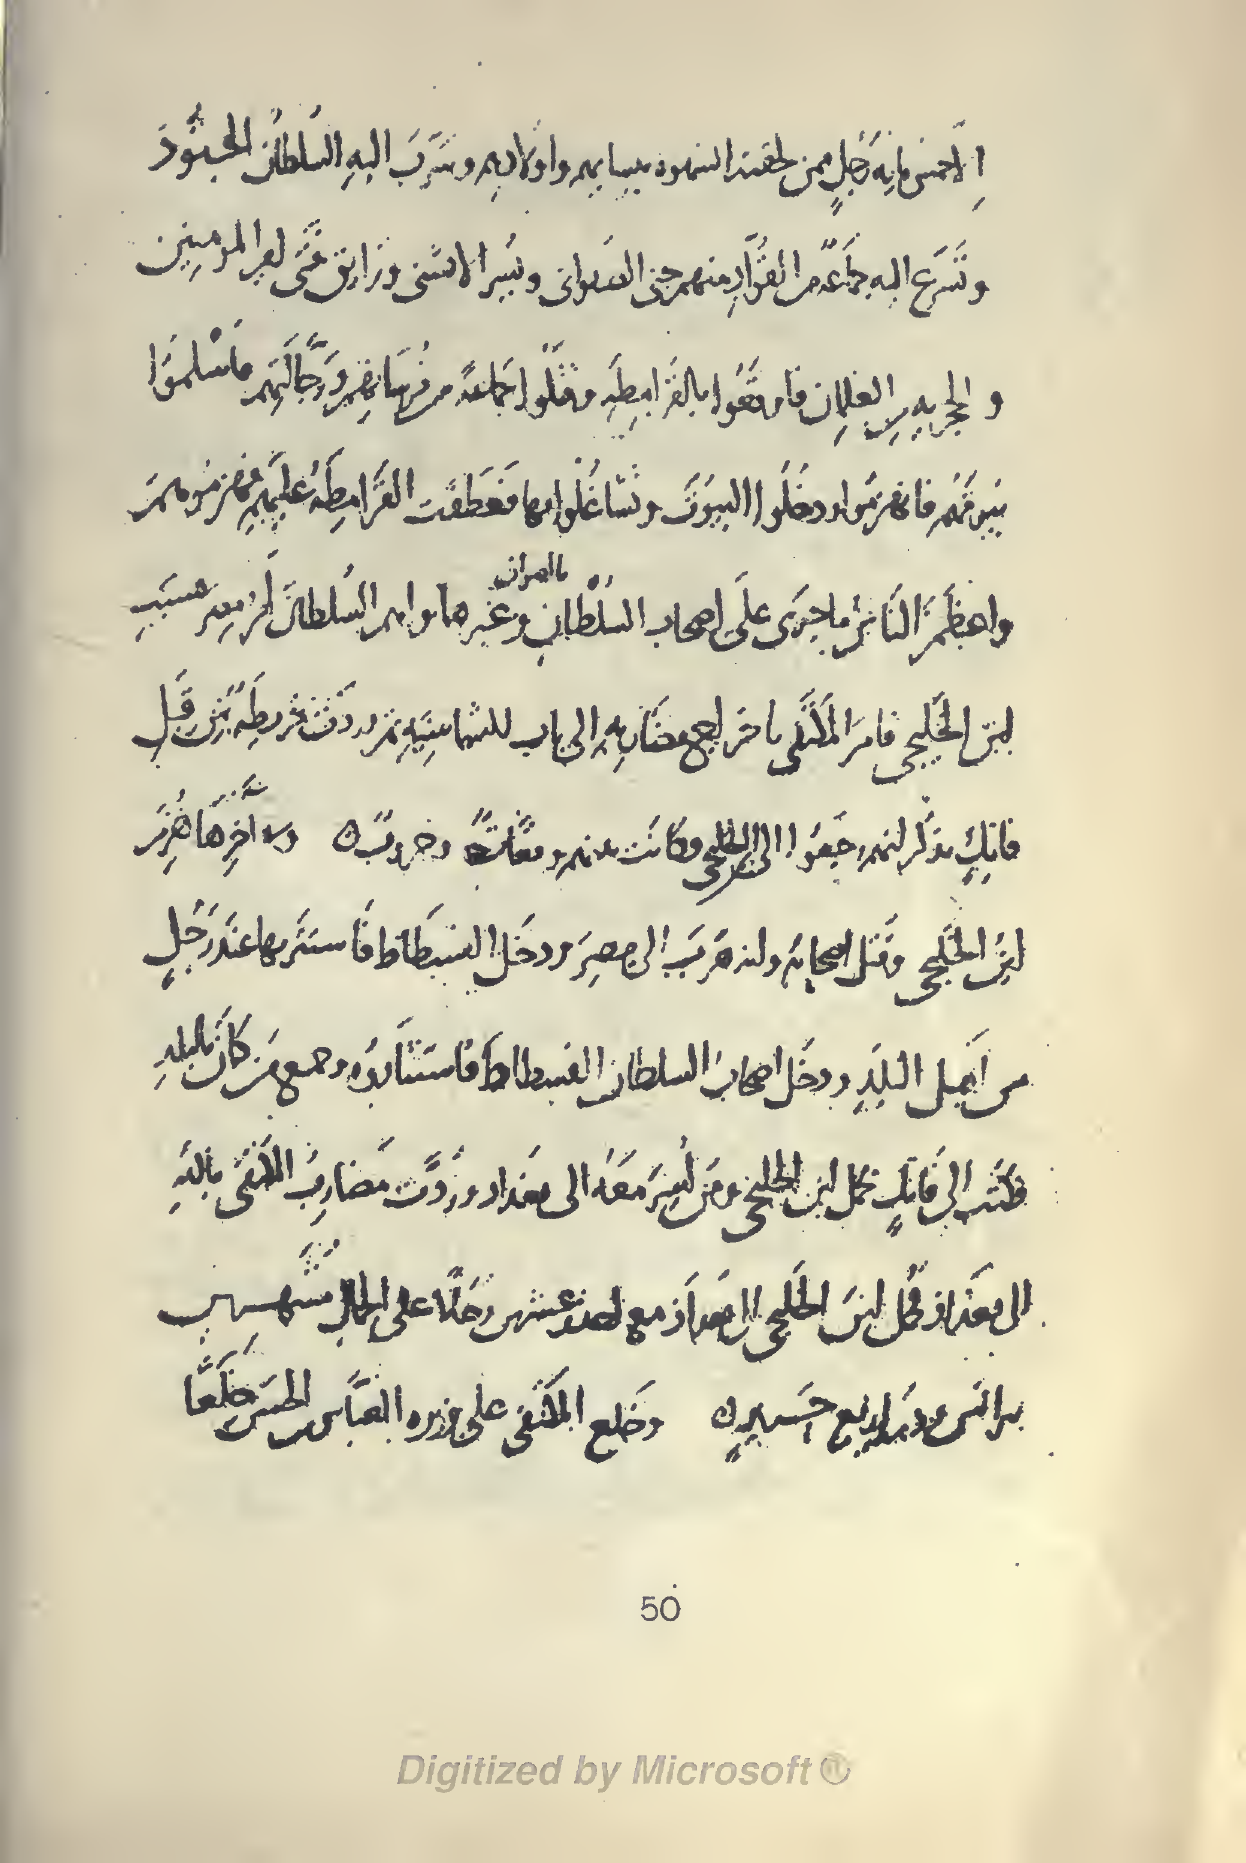 إلا خمس مايه رجل ممن لحقته النهوه بنسايهم واولادهم وسرب اليه السلطان الجنود
وتسرع اليه جماعة من القواد منهم جنى الصفوانى وبشر الافشينى ورايق فتى امير المومنين
والحجريه من الغلمان فاوقعوا بالقرامطه وقتلوا جماعة من فرسانهم ورجالتهم فاسلموا
بيوتهم فانهزموا ودخلوا البيوت وتشاغلوا بها فعطفت القرامطه عليهم فهزموهم
واعظم الناس ما جرى على اصحاب السلطان وغيرها
بالعراق
السلطان بسبب
ابن الخليجى فامر المكتفى باخراج مضاربه الى باب الشماسيه ثم وردت خريطه من قبل
فاتك يذكر انهم رجعوا الى ابن الخليجى وكانت بينهم وقعات وحروب وان آخرها هزم
ابن الخليجى وقتل اصحابه وانه هرب الى مصر ودخل الفسطاط فاستتر بها عند رجل
من اهل البلد ودخل اصحاب السلطان الفسطاط فاستثاروه وجميع من كان بالبلد
فكتب الى فاتك بحمل ابن الخليجى ومن اسر معه الى بغداد وردت مضارب المكتفى بالله
الى بغداد فحمل ابن الخليجى الى بغداد مع احد عشر رجلا على الجمال مشهرين
برانس ودراريع حرير وخلع المكتفى على وزيره العباس بن الحسن خلعا
50
Digitized by Microsoft ®